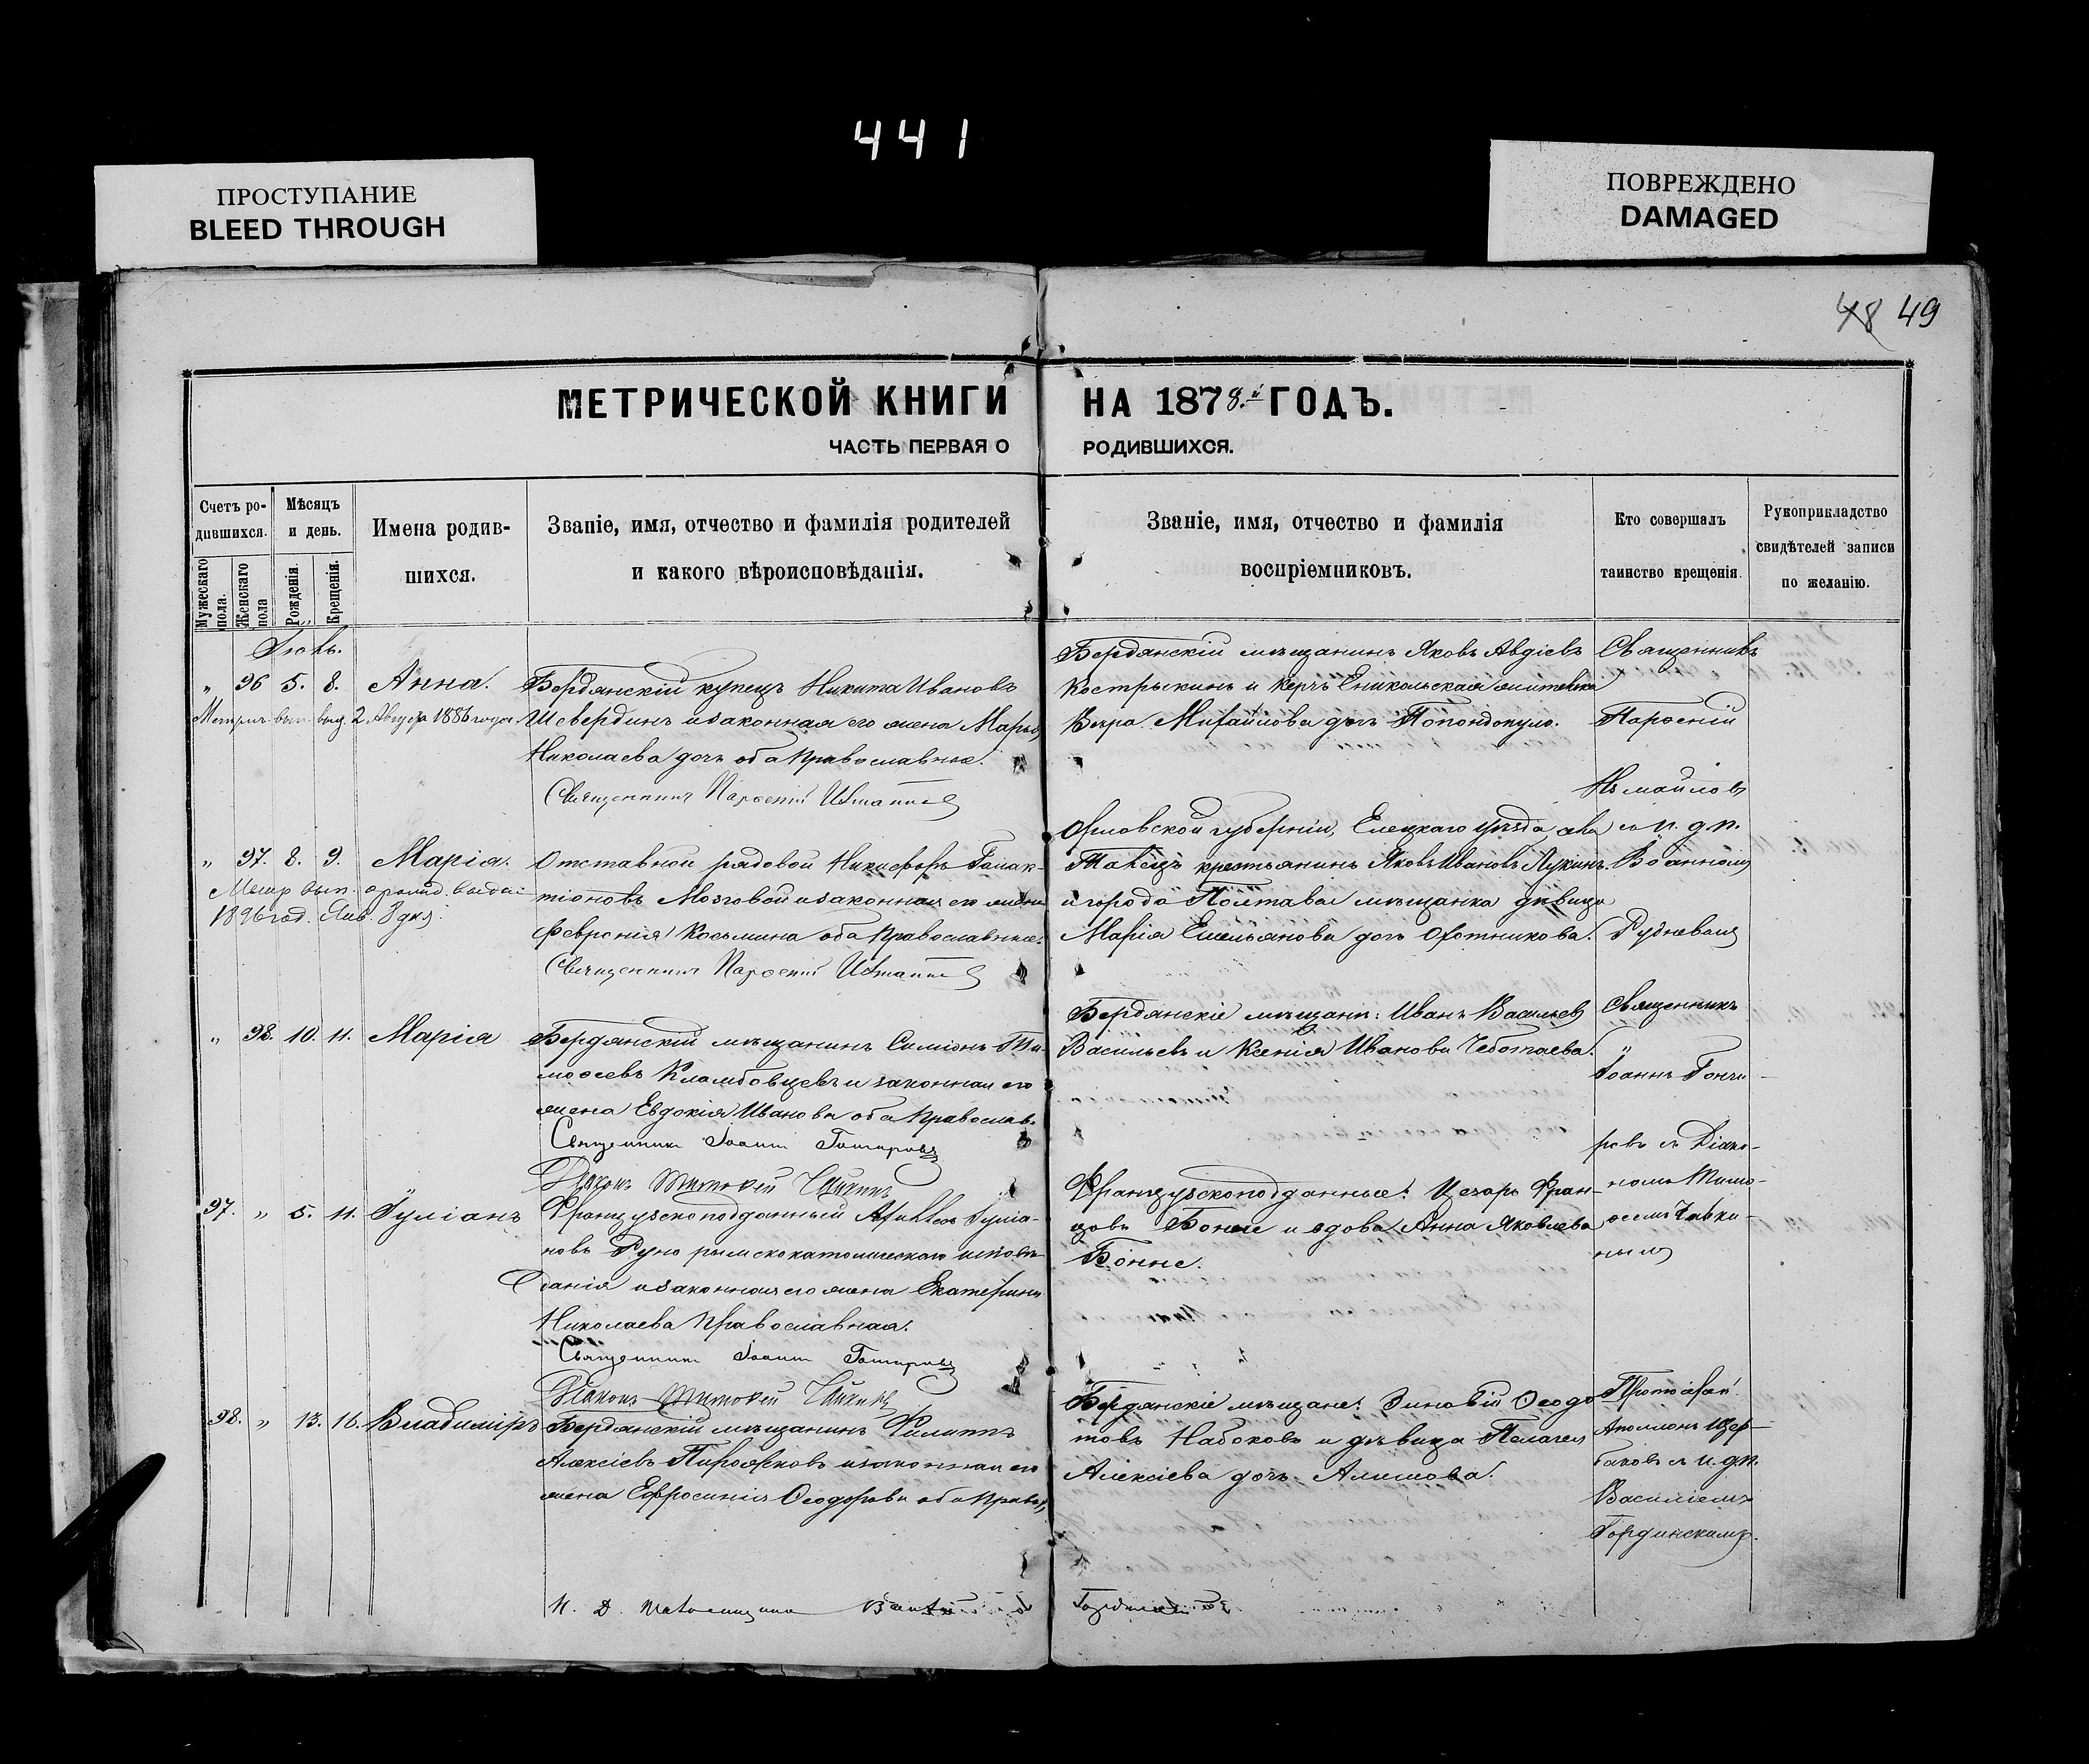 441
ПРОСТУПАНИЕ
BLEED THROUGH
ПОВРЕЖДЕНО
DAMAGED
48 49
МЕТРИЧЕСКОЙ КНИГИ НА 1878.й ГОДЪ.
ЧАСТЬ ПЕРВАЯ О РОДИВШИХСЯ.
Счетъ ро-
дившихся.
Мужескаго пола.
Женскаго пола
Мѣсяцъ
и день.
Рожденія.
Крещенія.
Имена родив-
шихся.
Званіе, имя, отчество и фамилія родителей
и какого вѣроисповѣданія.
Званіе, имя, отчество и фамилія
воспріемниковъ.
Кто совершалъ
таинство крещенія.
Рукоприкладство
свидѣтелей записи
по желанію.
Іюнь.
" 96 5. 8. Анна.
Метрич. вып. выд. 2 Августа 1886 года.
Бердянскій купецъ Никита Ивановъ
Шевердинъ и законная его жена Марья
Николаева дочь оба православные.
Священникъ Парѳеній
Бердянскій мѣщанинъ Яковъ Авдіевъ
Кострыкинъ и Керчь Еникольская жителька
Вѣра Михайлова дочь Попондопуло.
Священникъ
Парѳеній
" 97. 8. 9. Марія.
Метр. вып. о рожд. выда:
1896 год. Янв. 3 дня.
Отставной рядовой Никифоръ Галак-
тіоновъ Мозговой и законная его жена
Февронія Косьмина оба православные.
Священникъ Парѳеній
Орловской губерніи, Елецкаго уѣзда,
крестьянинъ Яковъ Ивановъ Лукинъ.
и города Полтавы мѣщанка дѣвица
Марія Емельянова дочь Охотникова.
съ и. д. п.
Іоанномъ
Рудневымъ
" 98. 10. 11. Марія
Бердянскій мѣщанинъ Симіонъ Ти-
моѳеевъ и законная его
жена Евдокія Иванова оба православ.
Священникъ Іоаннъ Гончаровъ
Діаконъ Тимоѳей Чайкинъ
Бердянскіе мѣщани: Иванъ Васильевъ
Васильевъ и Ксенія Иванова Чеботаева.
Священникъ
"
Іоаннъ Гонча-
ровъ съ Діако-
номъ Тимо-
ѳеемъ Чайки-
нымъ
97. " 5. 11. Іуліанъ
Французскоподданный Іуліа-
новъ Руно римскокатолическаго исповѣ-
данія и законная его жена Екатерина
Николаева православная.
Священникъ Іоаннъ Гончаровъ
Діаконъ Тимоѳей Чайкинъ
Французскоподданные: Цезарь Фран-
цовъ Бонне и вдова Анна Яковлева
Бонне.
98. " 13. 16. Владиміръ
Бердянскій мѣщанинъ Филиппъ
Алексіевъ и законная его
жена Ефросинія Ѳеодорова оба правос.
Бердянскіе мѣщане: Зиновій Ѳеодо-
товъ Набоковъ и дѣвица Пелагея
Алексіева дочь Алишова.
Протоіерей
Аполлонъ Щер-
баковъ съ и. д. п.
Василіемъ
Гординскимъ.
И. Д. Псаломщика Василій Гординскій